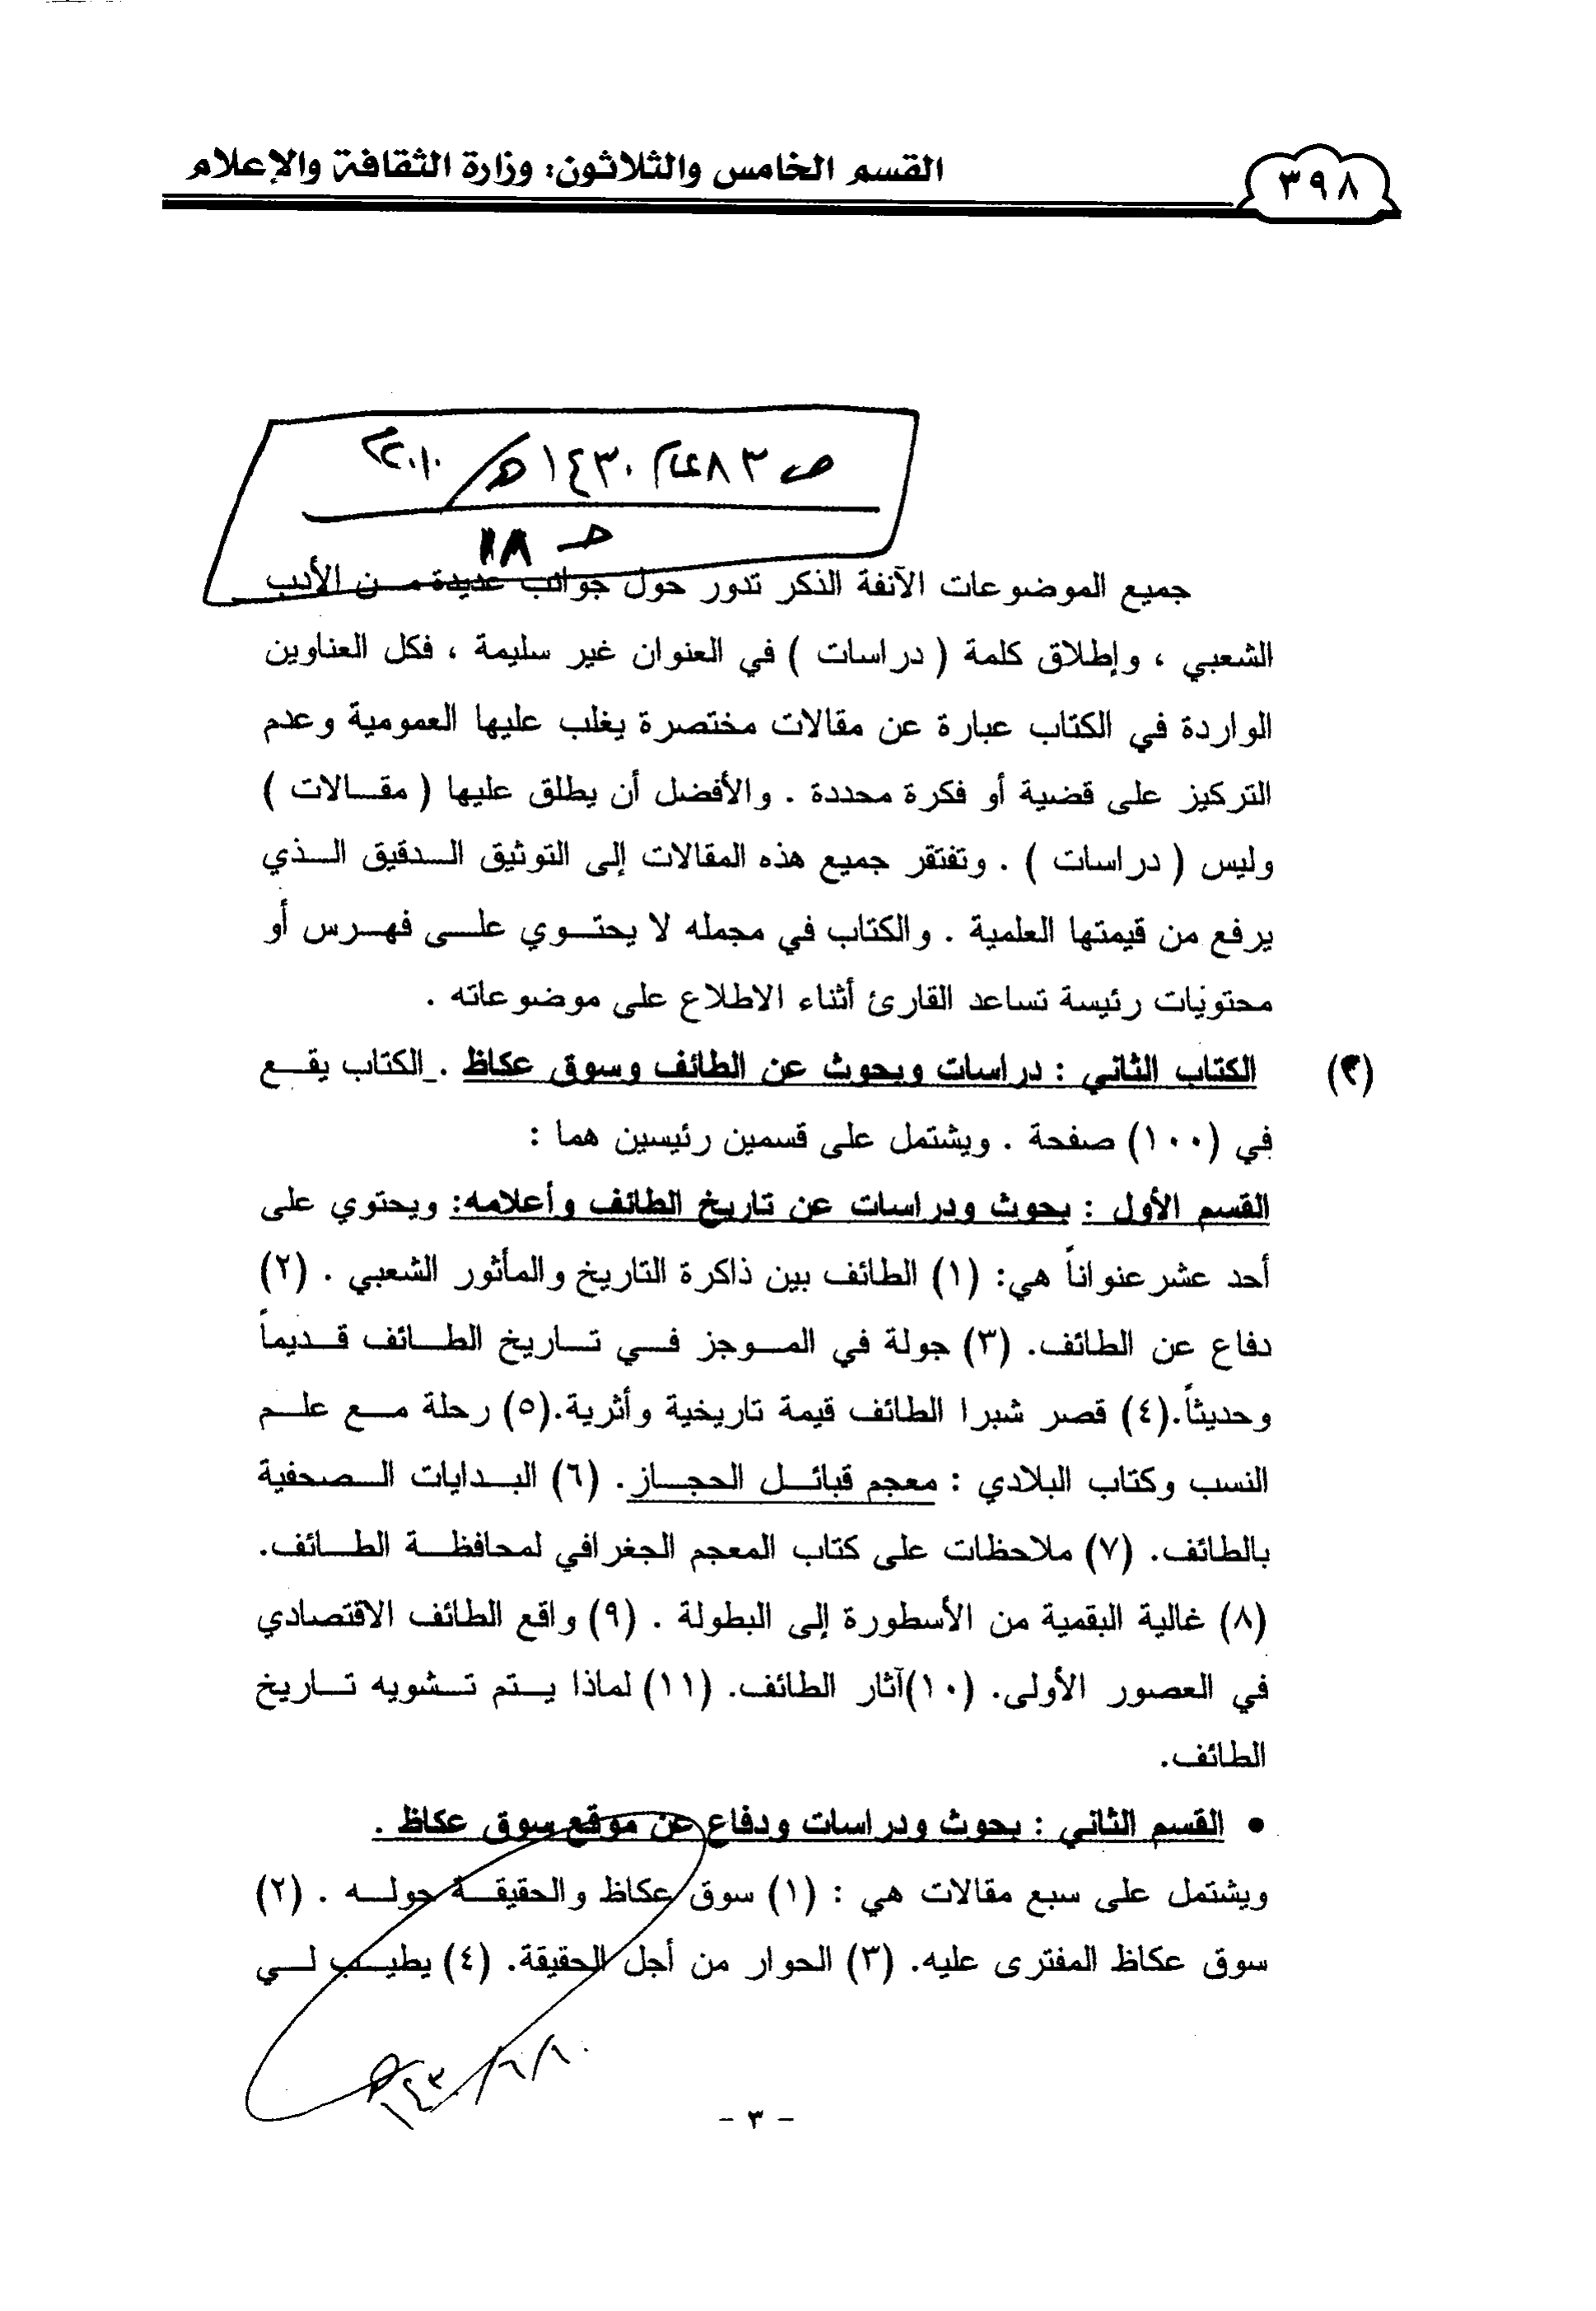 القسم الخامس والثلاثون: وزارة الثقافة والإعلام
٣٩٨
ص ٨٣ عام ١٤٣٠هـ / ٢٠١٠م
حـ ١٨
جميع الموضوعات الآنفة الذكر تدور حول جوانب عديدة مـن الأدب
الشعبي ، وإطلاق كلمة ( دراسات ) في العنوان غير سليمة ، فكل العناوين
الواردة في الكتاب عبارة عن مقالات مختصرة يغلب عليها العمومية وعدم
التركيز على قضية أو فكرة محددة . والأفضل أن يطلق عليها ( مقـالات )
وليس ( دراسات ) . وتفتقر جميع هذه المقالات إلى التوثيق الـدقيق الـذي
يرفع من قيمتها العلمية . والكتاب في مجمله لا يحتـوي علـى فهـرس أو
محتويات رئيسة تساعد القارئ أثناء الاطلاع على موضوعاته .
(٣) الكتاب الثاني : دراسات وبحوث عن الطائف وسوق عكاظ . الكتاب يقـع
في (١٠٠) صفحة . ويشتمل على قسمين رئيسين هما :
القسم الأول : بحوث ودراسات عن تاريخ الطائف وأعلامه: ويحتوي على
أحد عشر عنواناً هي: (١) الطائف بين ذاكرة التاريخ والمأثور الشعبي . (٢)
دفاع عن الطائف. (٣) جولة في المـوجز فـي تـاريخ الطـائف قـديماً
وحديثاً.(٤) قصر شبرا الطائف قيمة تاريخية وأثرية.(٥) رحلة مـع علـم
النسب وكتاب البلادي : معجم قبائـل الحجـاز. (٦) البـدايات الـصحفية
بالطائف. (٧) ملاحظات على كتاب المعجم الجغرافي لمحافظـة الطـائف.
(٨) غالية البقمية من الأسطورة إلى البطولة . (٩) واقع الطائف الاقتصادي
في العصور الأولى. (١٠)آثار الطائف. (١١) لماذا يـتم تـشويه تـاريخ
الطائف.
• القسم الثاني : بحوث ودراسات ودفاع عن موقع سوق عكاظ .
ويشتمل على سبع مقالات هي : (١) سوق عكاظ والحقيقـة حولـه . (٢)
سوق عكاظ المفترى عليه. (٣) الحوار من أجل الحقيقة. (٤) يطيـب لـي
- ٣ -